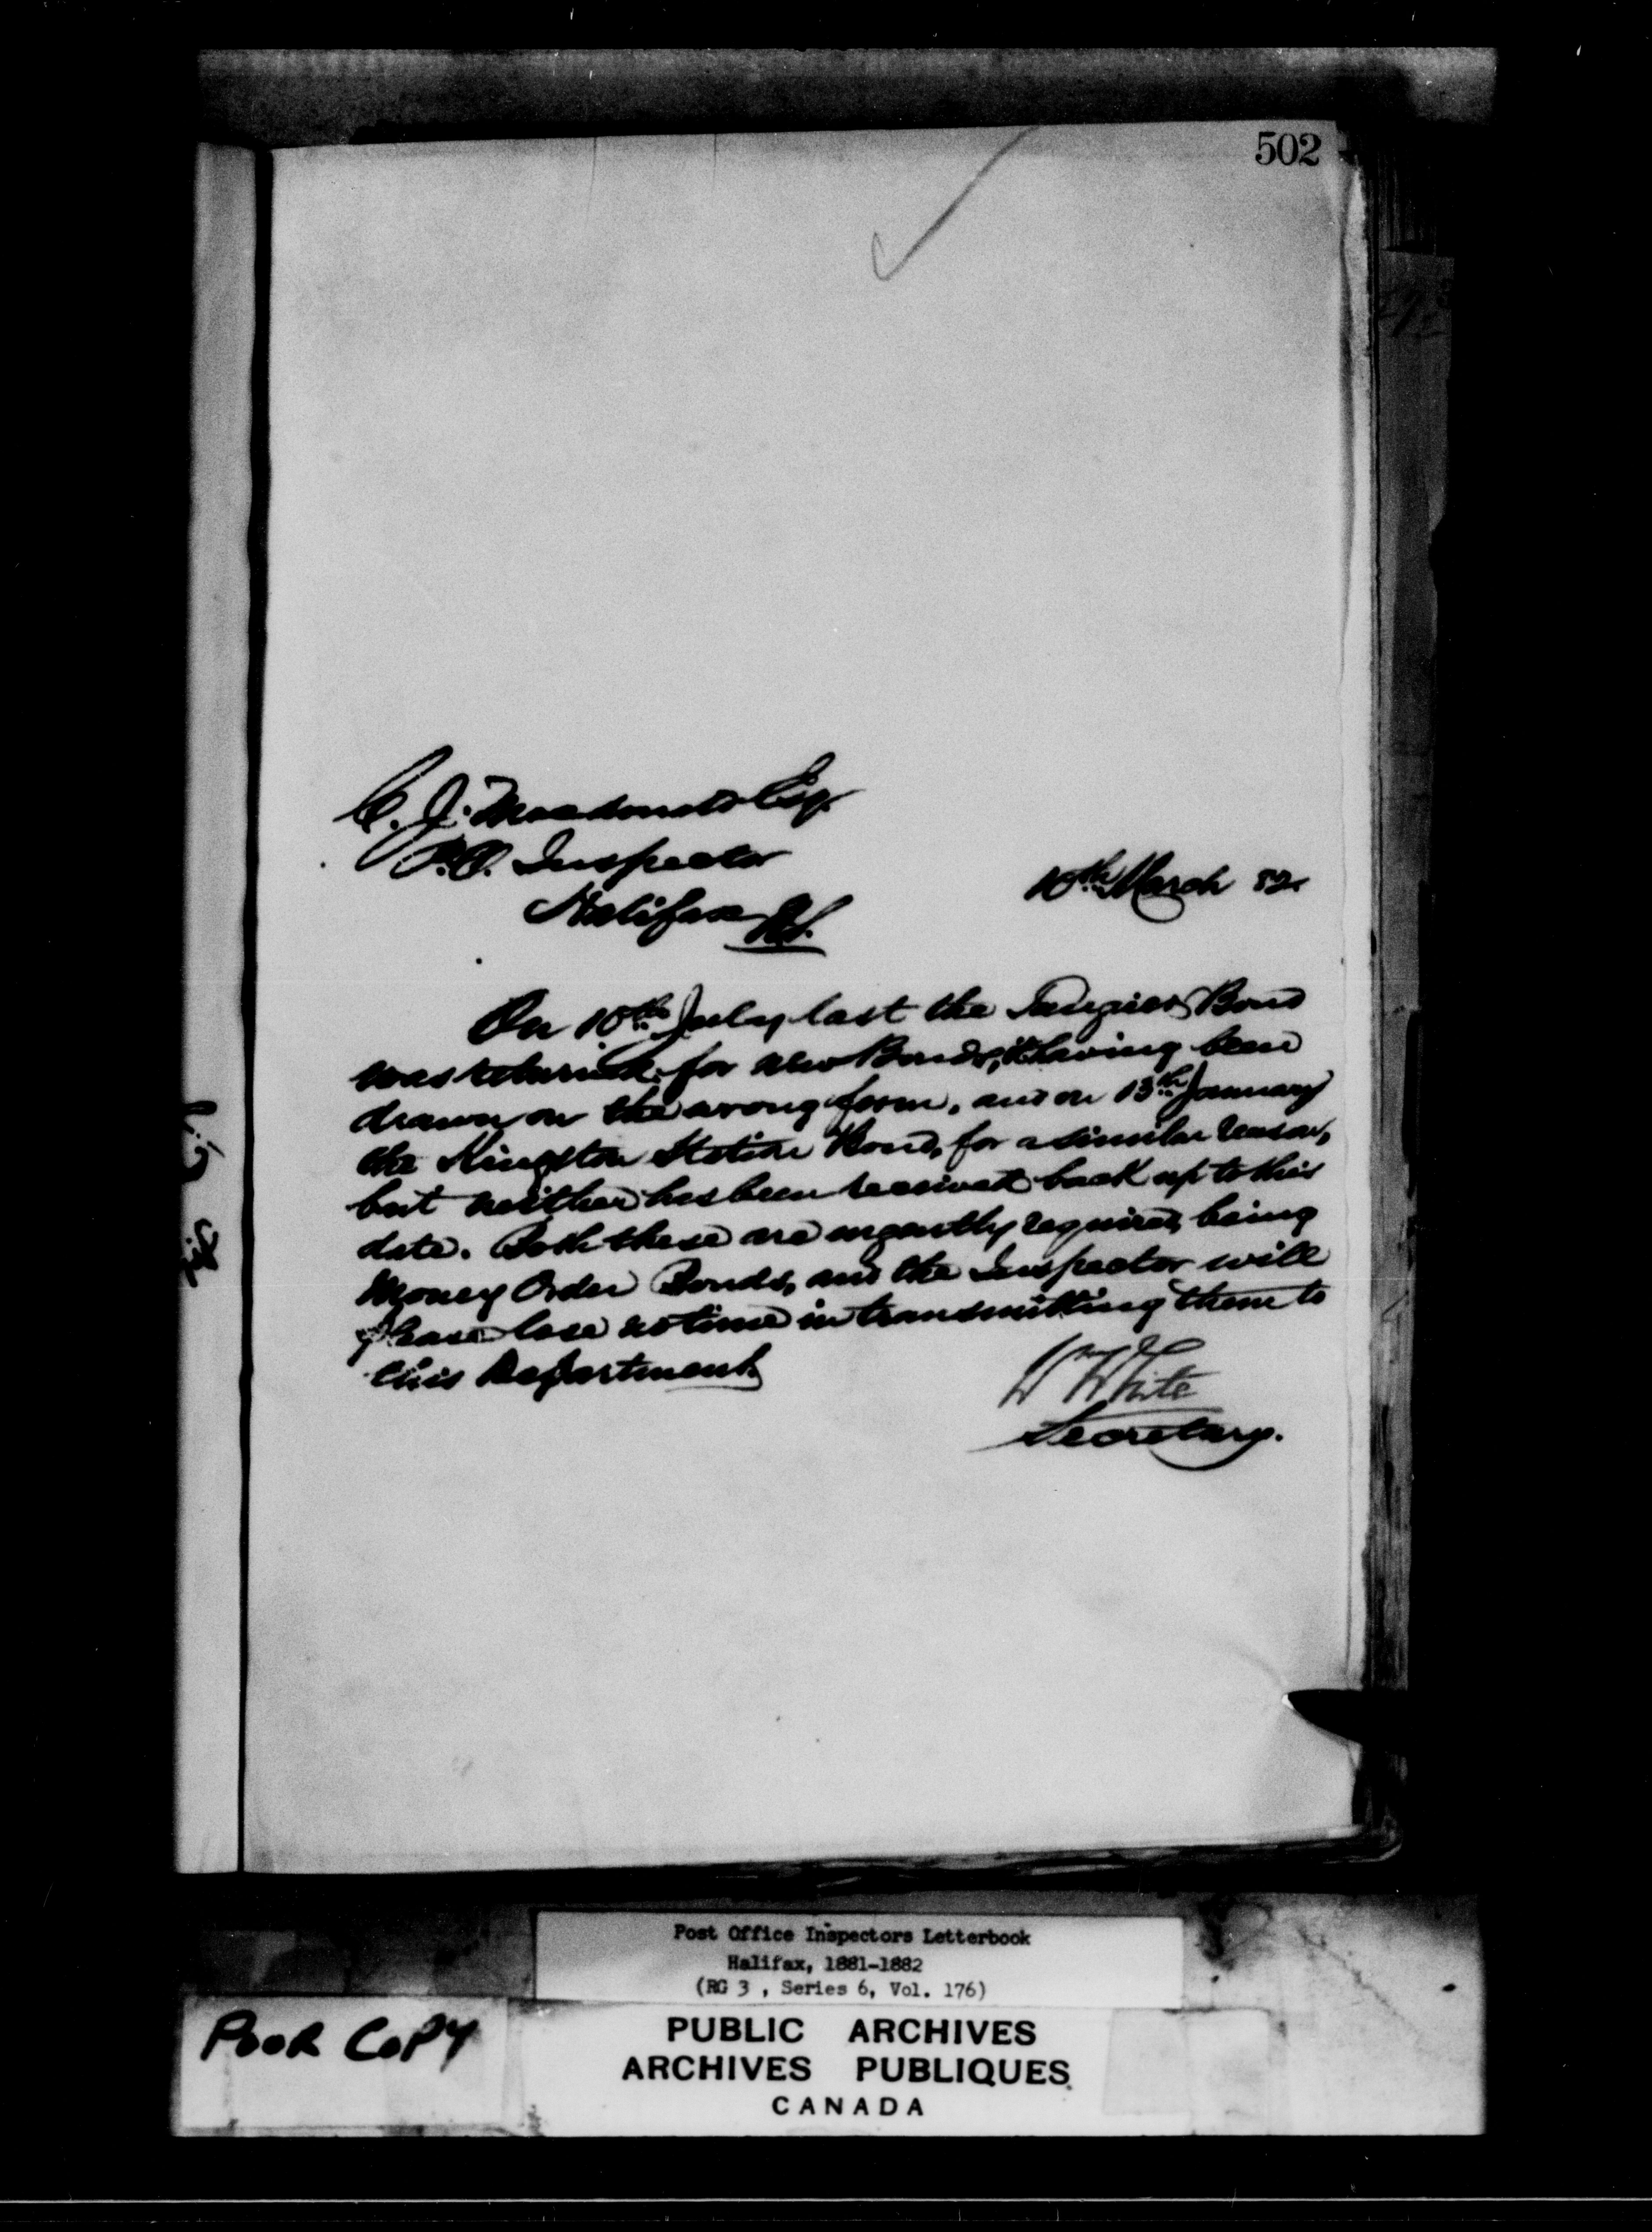 502
C. J. Macdonald Esq.
P.O. Inspector
Halifax N.S.
10th March 82.
On 10th July last the Tangier Bond
was returned for new Bonds, it having been
drawn on the wrong form, and on 13th January
the Kingston Station Bond, for a similar reason,
but neither has been received back up to this
date. Both these are urgently required, being
Money Order Bonds, and the Inspector will
please lose no time in transmitting them to
this Department.
W White
Secretary.
Post Office Inspectors Letterbook
Halifax, 1881-1882
(RG 3 , Series 6, Vol. 176)
POOR COPY
PUBLIC ARCHIVES
ARCHIVES PUBLIQUES
CANADA